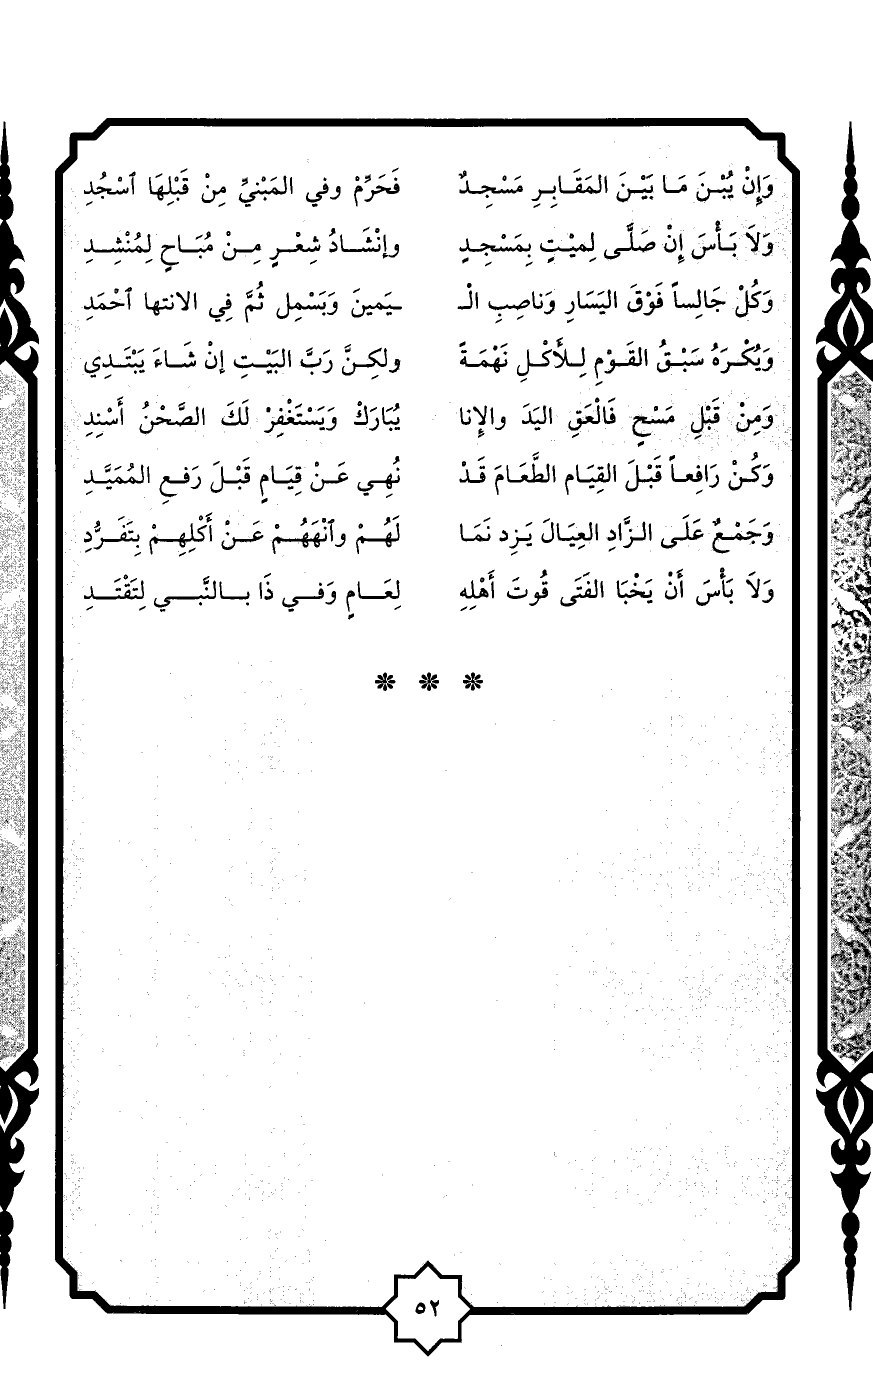 وَإِنْ يُبْـنَ مَـا بَيْـنَ المَقَـابِـرِ مَسْجِـدٌ فَحَرِّمْ وفي المَبْنيِّ مِنْ قَبْلِهَا ٱسْجُدِ
وَلَا بَـأْسَ إِنْ صَلَّـى لِميْـتٍ بِمَسْجِـدٍ وإنْشَـادُ شِعْـرٍ مِـنْ مُبَـاحٍ لِمُنْشِـدِ
وَكُلْ جَالِساً فَوْقَ اليَسَارِ وَناصِبِ الْـ ـيَمينَ وَبَسْمِل ثُمَّ فِي الانتها ٱحْمَدِ
وَيُكْـرَهُ سَبْـقُ القَـوْمِ لِـلأَكْـلِ نَهْمَـةً ولكِـنَّ رَبَّ البَيْـتِ إنْ شَـاءَ يَبْتَـدِي
وَمِنْ قَبْلِ مَسْحٍ فَالْعَقِ اليَدَ والإِنا يُبَارَكْ وَيَسْتَغْفِرْ لَكَ الصَّحْنُ أَسْنِدِ
وَكُـنْ رَافِعـاً قَبْـلَ القِيَـام الطَّعَـامَ قَـدْ نُهِـي عَـنْ قِيَـامٍ قَبْـلَ رَفـعِ المُمَيَّـدِ
وَجَمْـعٌ عَلَـى الـزَّادِ العِيَـالَ يَـزِد نَمَـا لَهُـمْ وٱنْهَهُـمْ عَـنْ أَكْلِهِـمْ بِتَفَـرُّدِ
وَلَا بَأْسَ أَنْ يَخْبَا الفَتَى قُوتَ أَهْلِهِ لِعَـامٍ وَفـي ذَا بـالنَّبـي لِتَقْتَـدِ
٥٢